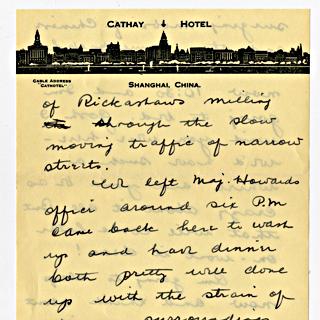 CATHAY HOTEL
CABLE ADDRESS
"CATHOTEL"
SHANGHAI, CHINA.
of Rickashaws milling
through the slow
moving traffic of narrow
streets.
We left Maj. Howards
office around six P.M
came back here to wash
up and have dinner
both pretty well done
up with the strain of